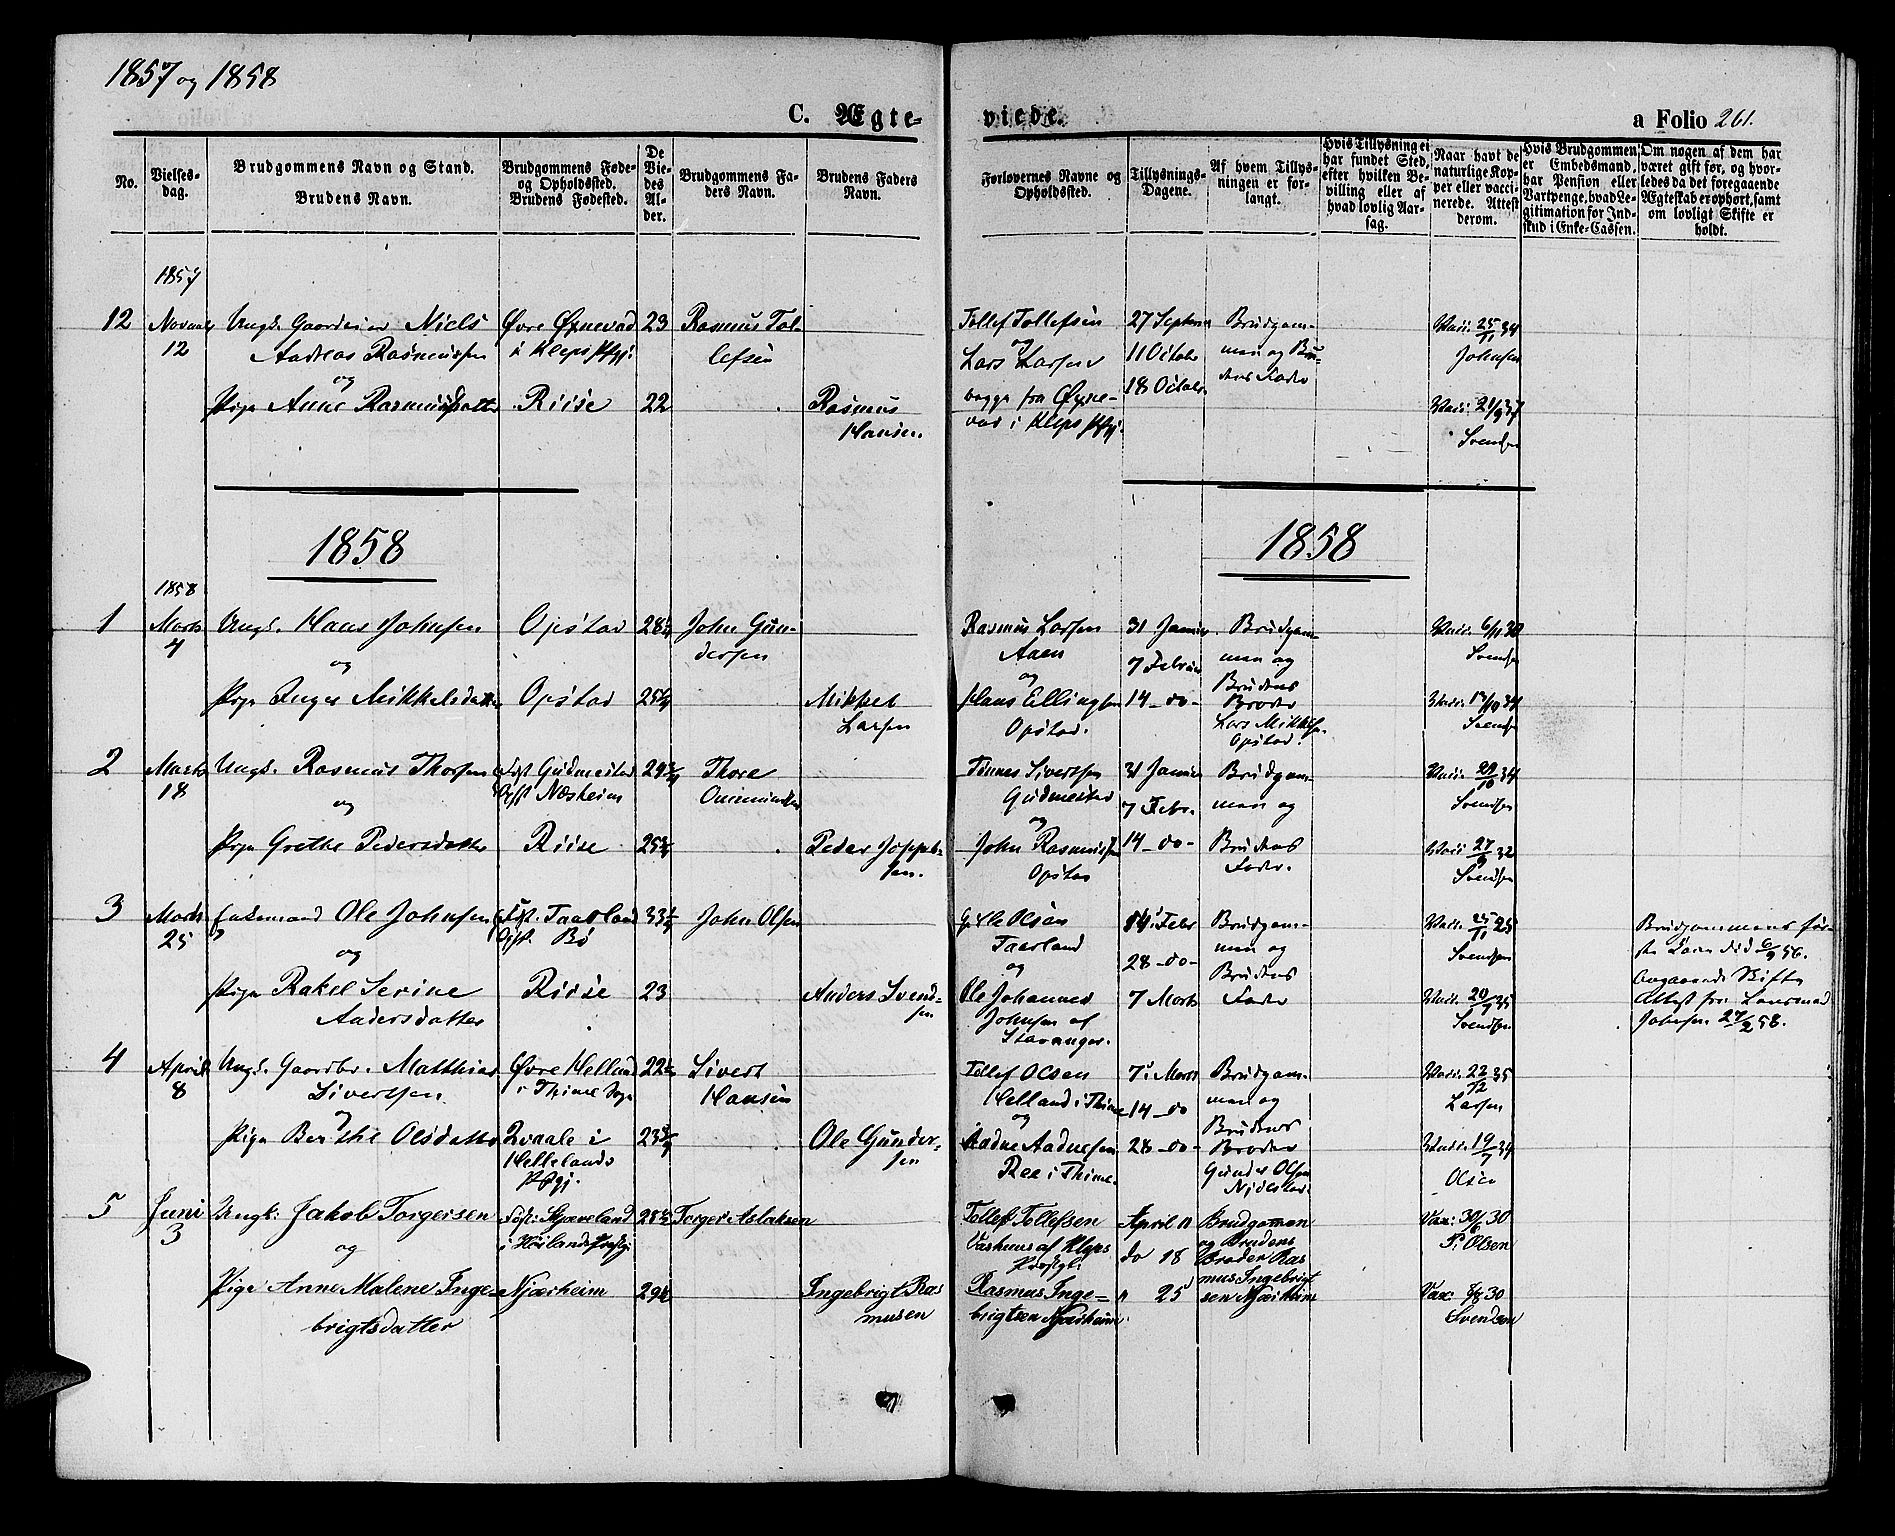 1857 og 1858
C. Ægte-
viede.
a Folio 261.
No.
Vielses-
dag.
Brudgommens Navn og Stand.
Brudens Navn.
Brudgommens Føde-
og Opholdssted.
Brudens Fødested.
De
Vie-
des
Al-
der.
Brudgommens Fa-
ders Navn.
Brudens Faders
Navn.
Forlovernes Navne og
Opholdssted.
Tillysnings-
Dagene.
Af hvem Tillys-
ningen er for-
langt.
Hvis Tillysning ei
har fundet Sted,
efter hvilken Be-
villing eller af
hvad lovlig Aar-
sag.
Naar havt de
naturlige Kop-
per eller vacci-
nerede. Attest
derom.
Hvis Brudgommen
er Embedsmand,
har Pension eller
Vartpenge, hvad Le-
gitimation for Ind-
skud i Enke-Cassen.
Om nogen af dem har
været gift før, og hvor-
ledes da det foregaaende
Ægteskab er ophørt, samt
om lovligt Skifte er
holdt.
1857
12
12
Ungk. Niels
Andreas Rasmussen
og
Pige Anne Rasmusdatter
Øvre Øxnevad
i Kleps
Riise
23
22
Rasmus Tol-
lefsen
Rasmus
Hansen.
Tollef Tollefsen
og
Lars Larsen
begge fra Øxne-
vad i Kleps
27 Septem
11 Octobr
18 Octobr
Brudgom-
men og Bru-
dens Fader
25/11 34
Johnsen
21/9 37
Svendsen
1858
1858
1858
1
Marts
4
Ungk. Hans Johnsen
og
Pige Inger Mikkelsdatter
Opstad
Opstad
John Gun-
dersen
Mikkel
Larsen
Rasmus Larsen
Aaen
og
Hans Ellingsen
Opstad.
31 Januar
7 Februar
14 - do -
Brudgom-
men og
Brudens
Broder
Lars Mikkels.
Opstad.
Svendsen
Svendsen
2
Marts
18
Ungk. Rasmus Thorsen
og
Pige Grethe Pedersdatter
Gudmestad
Næsheim
Riise
Thore
Peder
sen.
Tønnes Sivertsen
Gudmestad
og
John Rasmussen
Opstad
31 Januar
7 Febr.
14 - do -
Brudgom-
men og
Brudens
Fader.
29/10 34
Svendsen
27/9 32
Svendsen
3
Marts
25
Enkemand Ole Johnsen
og
Pige Rakel Serine
Andersdatter
Taarland
Bø
Riise
23
John Olsen
Anders Svend-
sen
Ole Olsen
Taarland
og
Ole Johannes
Johnsen af
Stavanger.
14 Febr
28 - do -
7 Marts
Brudgom-
men og
Brudens
Fader
25/11 25
Svendsen
20/7 35
Svendsen
Brudgommens før-
ste Kone død 6/9 56.
Angaaende Skifte
Attest fra Lensmand
Johnsen 27/2 58.
4
April
8
Ungk. Gaardbr. Matthias
Sivertsen
og
Pige Berthe Olsdatter
Øvre Helland
i Thime Sogn
Qvaale i
Hellelands
Pgj.
Sivert
Hansen
Ole Gunder-
sen
Tollef Olsen
Helland i Thime
og
Aadne Aadnesen
Ree i Thime.
7 Marts
14 - do
28 - do -
Brudgom-
men og
Brudens
Broder
Gunder Olsen
22/12 35
Larsen
19/7 34
Olsen
5
Juni
3
Ungk: Jakob Torgersen
og
Pige Anne Malene Inge-
brigtsdatter
Føst: Skjæveland
i Høilands Prstgj
Njærheim
Torger Aslaksen
Ingebrigt Ras
musen
Tollef Tollefsen
Vashuus af Kleps
Prstgj.
Rasmus Inge-
brigtsen Njærheim.
April 11
do 18
" 25
Brudgommen
og Brudens
Broder Ras
mus Ingebrigt
sen Njærheim
Vax: 30/6 30
P. Olsen
Vax: 30
Svendsen